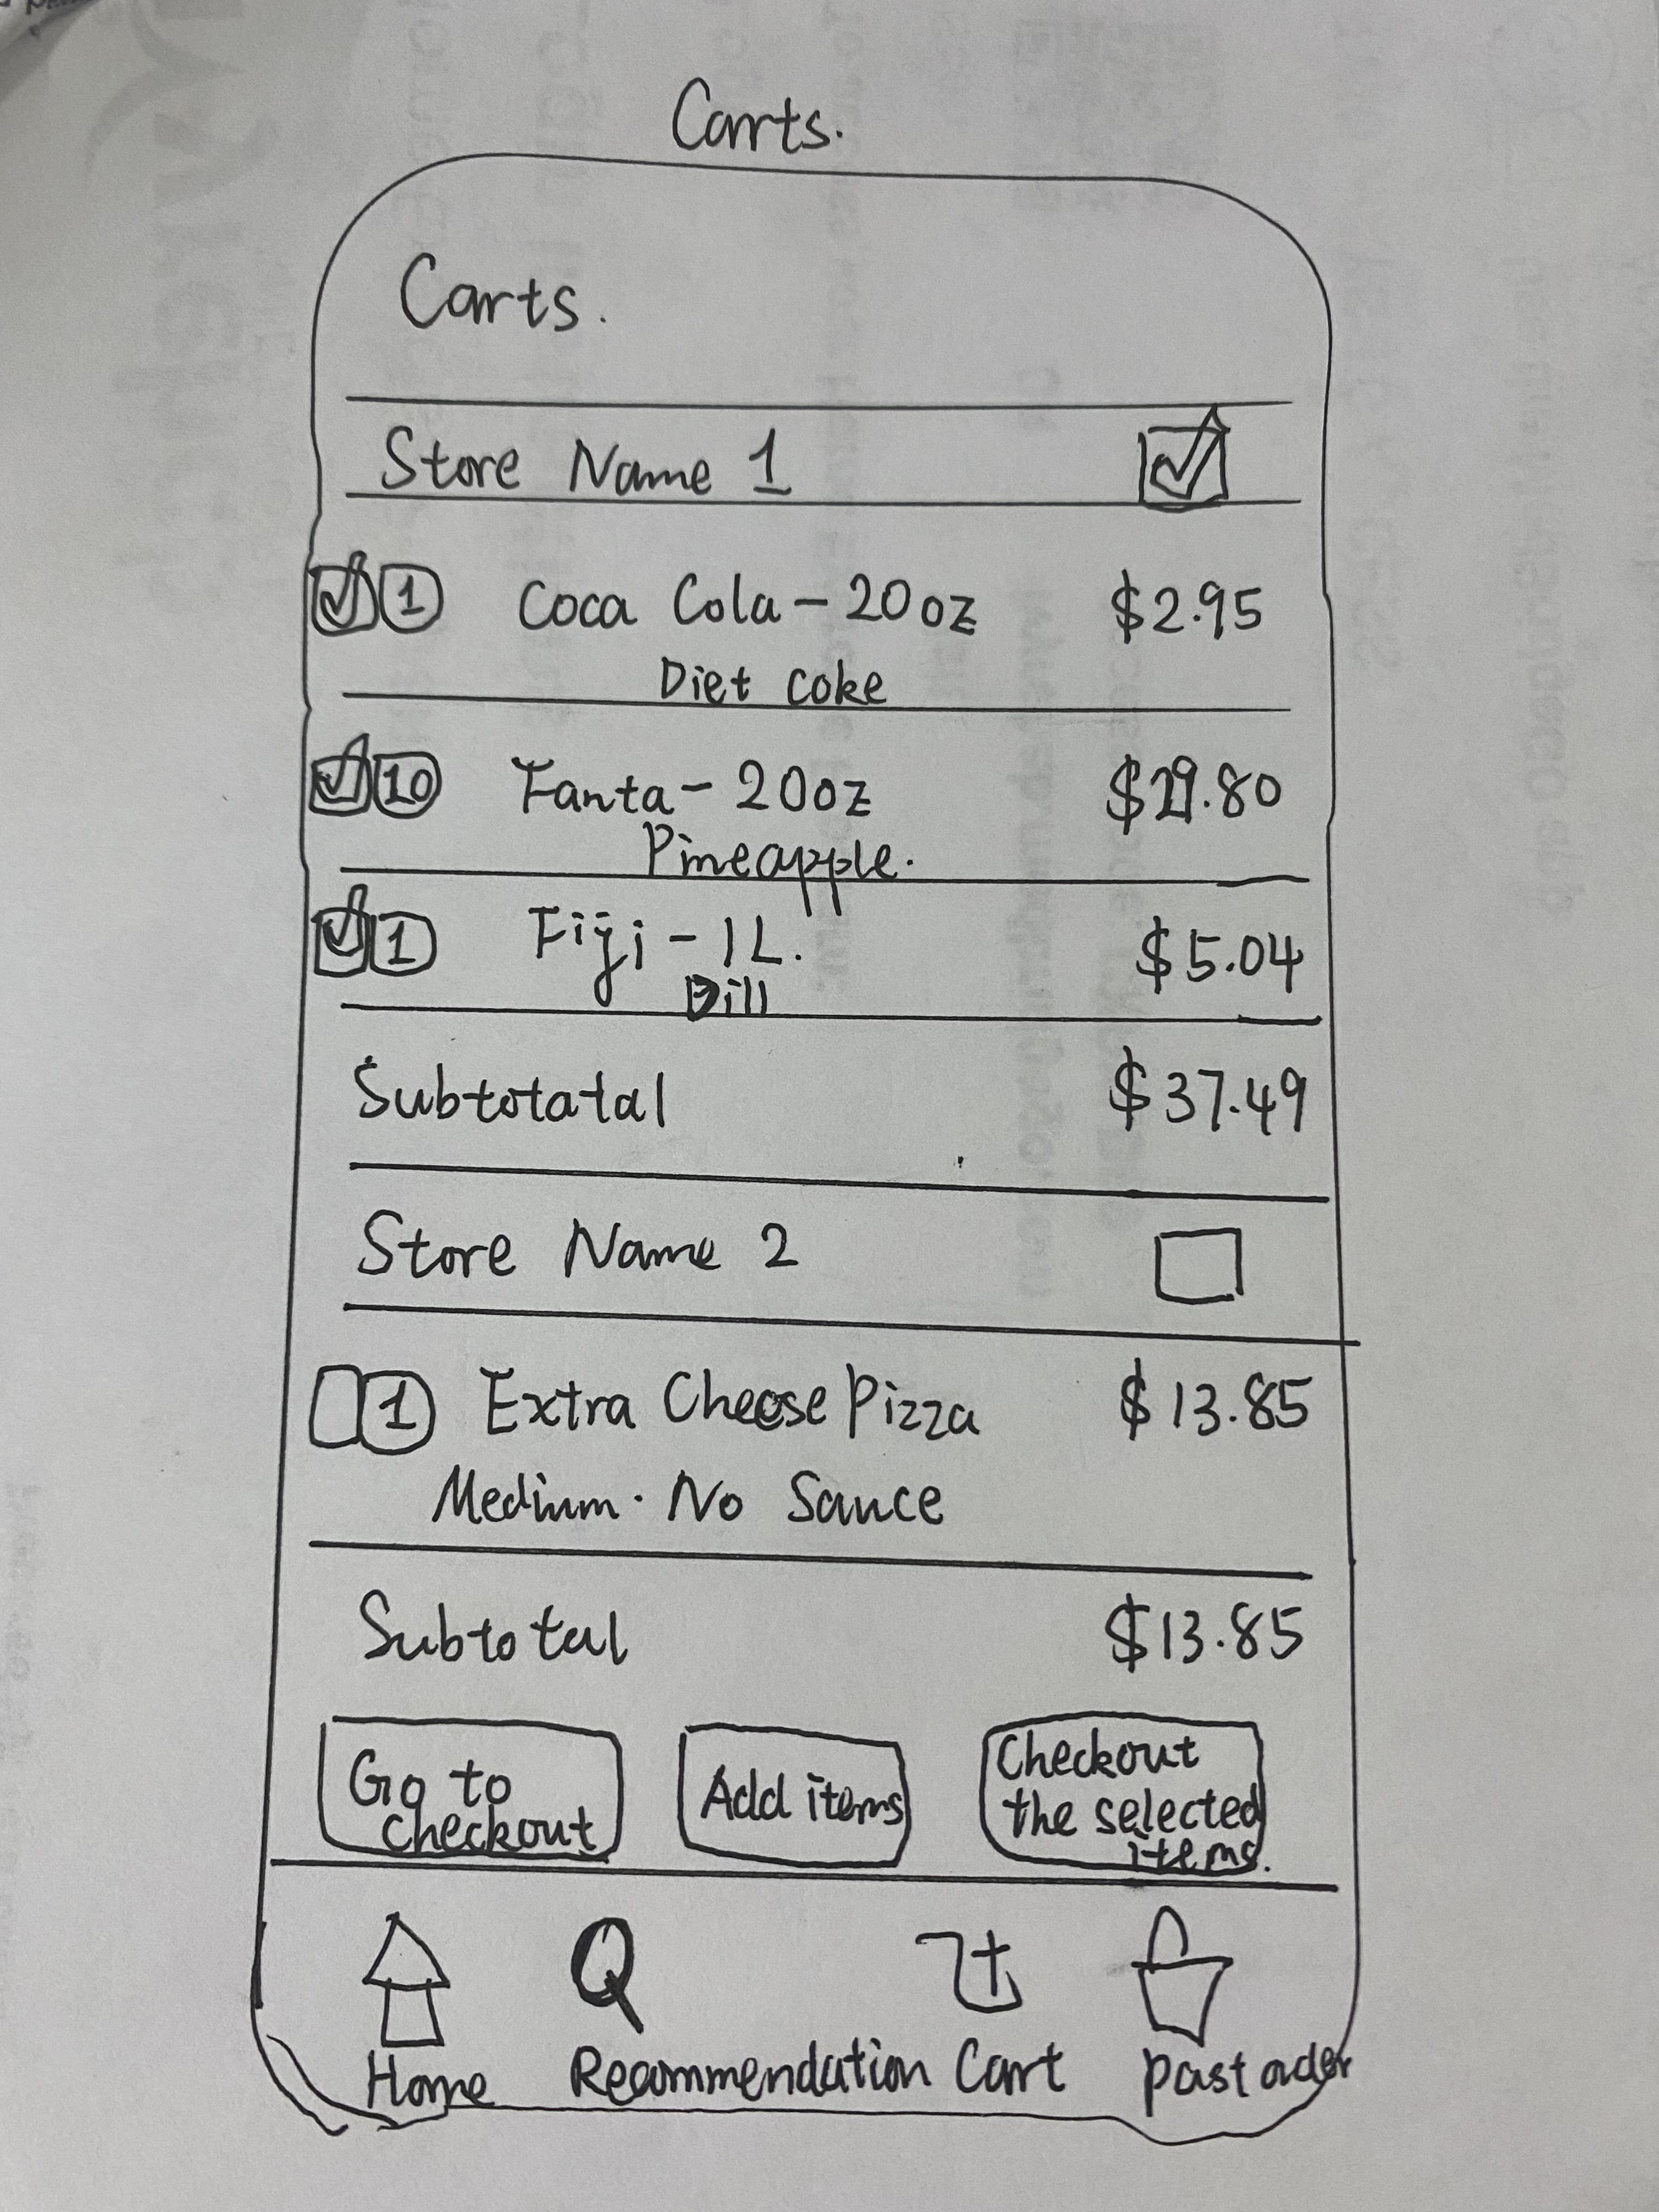 Carts.
Carts.
Store Name 1
1 Coca Cola - 20oz $2.95
Diet coke
10 Fanta - 20oz $29.80
Pineapple.
1 Fiji - 1L. $5.04
Subtotatal $37.49
Store Name 2
1 Extra Cheese Pizza $13.85
Medium · No Sauce
Subtotal $13.85
Go to
checkout
Add items
Checkout
the selected
items.
Home Recommendation Cart past order